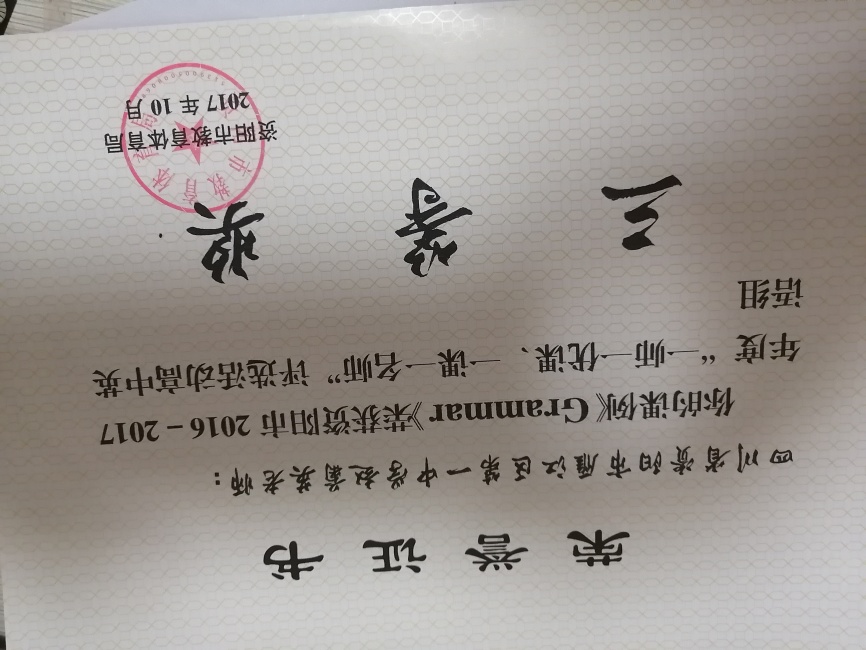 荣誉证书
四川省资阳市雁江区第一中学赵菊英老师：
你的课例《Grammar》荣获资阳市 2016－2017
年度“一师一优课、一课一名师”评选活动高中英
语组
三等奖
资阳市教育体育局
2017 年 10 月